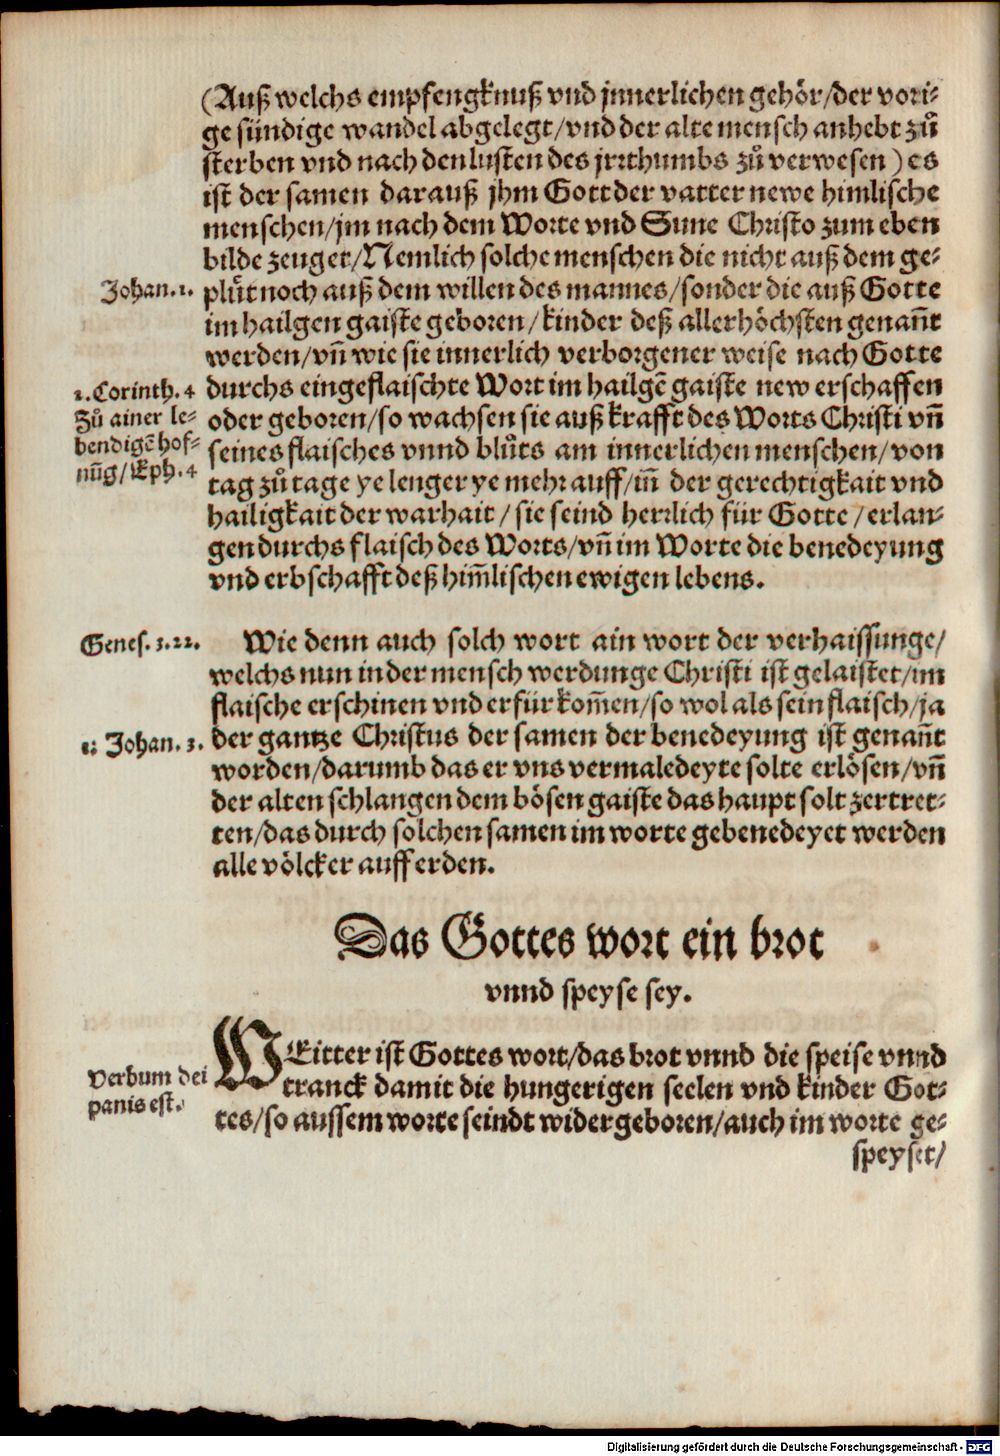 (Auß welchs empfengknuß vnd jnnerlichen gehör/der vori-
ge sündige wandel abgelegt/vnd der alte mensch anhebt zů
sterben vnd nach den lusten des jrrthumbs zů verwesen) es
ist der samen darauß jhm Gott der vatter newe himlische
menschen/jm nach dem Worte vnd Sune Christo zum eben
bilde zeuget/Nemlich solche menschen die nicht auß dem ge-
Johan. 1.
plůt noch auß dem willen des mannes/sonder die auß Gotte
im hailgen gaiste geboren/kinder deß allerhöchsten genañt
werden/vñ wie sie innerlich verborgener weise nach Gotte
2. Corinth. 4
durchs eingeflaischte Wort im hailgẽ gaiste new erschaffen
Zů ainer le-
oder geboren/so wachsen sie auß krafft des Worts Christi vñ
bendigẽ hof-
seines flaisches vnnd blůts am innerlichen menschen/von
nũg/Eph. 4
tag zů tage ye lenger ye mehr auff/iñ der gerechtigkait vnd
hailigkait der warhait/sie seind herrlich für Gotte/erlan-
gen durchs flaisch des Worts/vñ im Worte die benedeyung
vnd erbschafft deß him̃lischen ewigen lebens.
Genes. 3. 22.
Wie denn auch solch wort ain wort der verhaissunge/
welchs nun in der mensch werdunge Christi ist gelaistet/im
flaische erschinen vnd erfür kom̃en/so wol als sein flaisch/ja
1: Johan. 3.
der gantze Christus der samen der benedeyung ist genañt
worden/darumb das er vns vermaledeyte solte erlösen/vñ
der alten schlangen dem bösen gaiste das haupt solt zertret-
ten/das durch solchen samen im worte gebenedeyet werden
alle völcker auff erden.
Das Gottes wort ein brot
vnnd speyse sey.
WEitter ist Gottes wort/das brot vnnd die speise vnnd
Verbum dei
tranck damit die hungerigen seelen vnd kinder Got-
panis est.
tes/so aussem worte seindt widergeboren/auch im worte ge-
speyset/
Digitalisierung gefördert durch die Deutsche Forschungsgemeinschaft - DFG